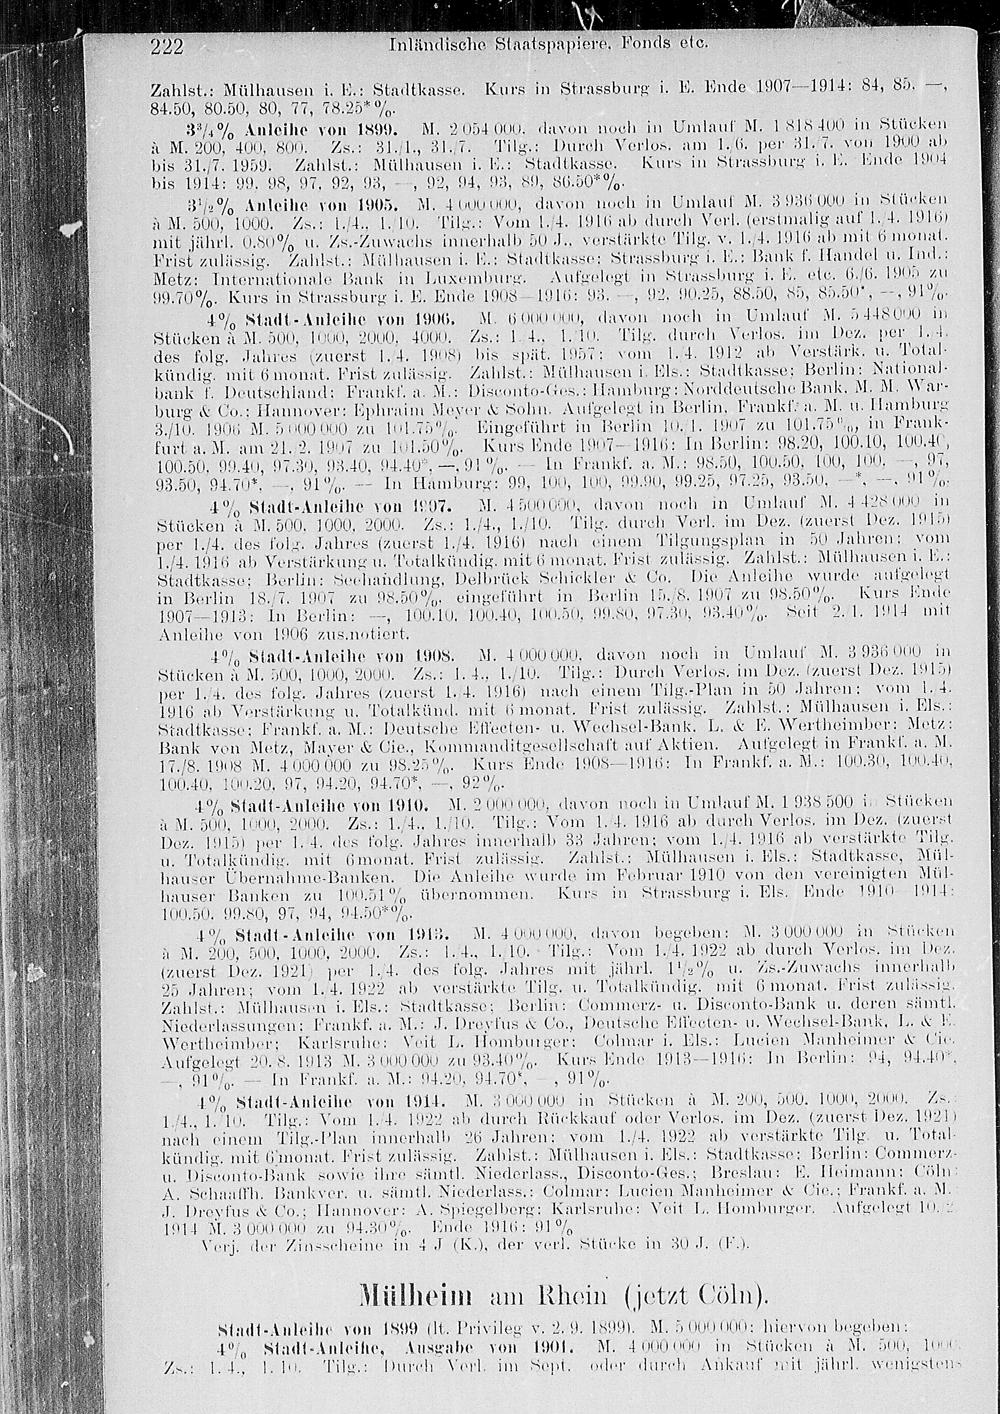 222 Inländische Staatspapiere, Fonds etc.
Zahlst.: Mülhausen i. E.: Stadtkasse. Kurs in Strassburg i. E. Ende 1907—1914: 84, 85, —,
84.50, 80.50, 80, 77, 78.25*%.
3³/₄% Anleihe von 1899. M. 2 054 000, davon noch in Umlauf M. 1 818 400 in Stücken
à M. 200, 400, 800. Zs.: 31./1., 31./7. Tilg.: Durch Verlos. am 1./6. per 31./7. von 1900 ab
bis 31./7. 1959. Zahlst.: Mülhausen i. E.: Stadtkasse. Kurs in Strassburg i. E. Ende 1904
bis 1914: 99, 98, 97, 92, 93, —, 92, 94, 93, 89, 86.50*%.
3¹/₂% Anleihe von 1905. M. 4 000 000, davon noch in Umlauf M. 3 936 000 in Stücken
à M. 500, 1000. Zs.: 1./4., 1./10. Tilg.: Vom 1./4. 1916 ab durch Verl. (erstmalig auf 1./4. 1916)
mit jährl. 0.80% u. Zs.-Zuwachs innerhalb 50 J., verstärkte Tilg. v. 1./4. 1916 ab mit 6 monat.
Frist zulässig. Zahlst.: Mülhausen i. E.: Stadtkasse; Strassburg i. E.: Bank f. Handel u. Ind.;
Metz: Internationale Bank in Luxemburg. Aufgelegt in Strassburg i. E. etc. 6./6. 1905 zu
99.70%. Kurs in Strassburg i. E. Ende 1908—1916: 93, —, 92, 90.25, 88.50, 85, 85.50*, —, 91%.
4% Stadt-Anleihe von 1906. M. 6 000 000, davon noch in Umlauf M. 5 448 000 in
Stücken à M. 500, 1000, 2000, 4000. Zs.: 1./4., 1./10. Tilg. durch Verlos. im Dez. per 1./4.
des folg. Jahres (zuerst 1./4. 1908) bis spät. 1957; vom 1./4. 1912 ab Verstärk. u. Total-
kündig. mit 6 monat. Frist zulässig. Zahlst.: Mülhausen i. Els.: Stadtkasse; Berlin: National-
bank f. Deutschland; Frankf. a. M.: Disconto-Ges.; Hamburg: Norddeutsche Bank, M. M. War-
burg & Co.; Hannover: Ephraim Meyer & Sohn. Aufgelegt in Berlin, Frankf. a. M. u. Hamburg
3./10. 1906 M. 5 000 000 zu 101.75%. Eingeführt in Berlin 10./1. 1907 zu 101.75%, in Frank-
furt a. M. am 21./2. 1907 zu 101.50%. Kurs Ende 1907—1916: In Berlin: 98.20, 100.10, 100.40,
100.50, 99.40, 97.30, 93.40, 94.40*, —, 91%. — In Frankf. a. M.: 98.50, 100.50, 100, 100, —, 97,
93.50, 94.70*, —, 91%. — In Hamburg: 99, 100, 100, 99.90, 99.25, 97.25, 93.50, —*, —, 91%.
4% Stadt-Anleihe von 1907. M. 4 500 000, davon noch in Umlauf M. 4 428 000 in
Stücken à M. 500, 1000, 2000. Zs.: 1./4., 1./10. Tilg. durch Verl. im Dez. (zuerst Dez. 1915)
per 1./4. des folg. Jahres (zuerst 1./4. 1916) nach einem Tilgungsplan in 50 Jahren; vom
1./4. 1916 ab Verstärkung u. Totalkündig. mit 6 monat. Frist zulässig. Zahlst.: Mülhausen i. E.:
Stadtkasse; Berlin: Seehandlung, Delbrück Schickler & Co. Die Anleihe wurde aufgelegt
in Berlin 18./7. 1907 zu 98.50%, eingeführt in Berlin 15./8. 1907 zu 98.50%. Kurs Ende
1907—1913: In Berlin: —, 100.10, 100.40, 100.50, 99.80, 97.30, 93.40%. Seit 2./1. 1914 mit
Anleihe von 1906 zus.notiert.
4% Stadt-Anleihe von 1908. M. 4 000 000, davon noch in Umlauf M. 3 936 000 in
Stücken à M. 500, 1000, 2000. Zs.: 1./4., 1./10. Tilg.: Durch Verlos. im Dez. (zuerst Dez. 1915)
per 1./4. des folg. Jahres (zuerst 1./4. 1916) nach einem Tilg.-Plan in 50 Jahren; vom 1./4.
1916 ab Verstärkung u. Totalkünd. mit 6 monat. Frist zulässig. Zahlst.: Mülhausen i. Els.:
Stadtkasse; Frankf. a. M.: Deutsche Effecten- u. Wechsel-Bank, L. & E. Wertheimber; Metz:
Bank von Metz, Mayer & Cie., Kommanditgesellschaft auf Aktien. Aufgelegt in Frankf. a. M.
17./8. 1908 M. 4 000 000 zu 98.25%. Kurs Ende 1908—1916: In Frankf. a. M.: 100.30, 100.40,
100.40, 100.20, 97, 94.20, 94.70*, —, 92%.
4% Stadt-Anleihe von 1910. M. 2 000 000, davon noch in Umlauf M. 1 938 500 i. Stücken
à M. 500, 1000, 2000. Zs.: 1./4., 1./10. Tilg.: Vom 1./4. 1916 ab durch Verlos. im Dez. (zuerst
Dez. 1915) per 1./4. des folg. Jahres innerhalb 33 Jahren; vom 1./4. 1916 ab verstärkte Tilg.
u. Totalkündig. mit 6monat. Frist zulässig. Zahlst.: Mülhausen i. Els.: Stadtkasse, Mül-
hauser Übernahme-Banken. Die Anleihe wurde im Februar 1910 von den vereinigten Mül-
hauser Banken zu 100.51% übernommen. Kurs in Strassburg i. Els. Ende 1910—1914:
100.50, 99.80, 97, 94, 94.50*%.
4% Stadt-Anleihe von 1913. M. 4 000 000, davon begeben: M. 3 000 000 in Stücken
à M. 200, 500, 1000, 2000. Zs.: 1./4., 1./10. Tilg.: Vom 1./4. 1922 ab durch Verlos. im Dez.
(zuerst Dez. 1921) per 1./4. des folg. Jahres mit jährl. 1¹/₂% u. Zs.-Zuwachs innerhalb
25 Jahren; vom 1./4. 1922 ab verstärkte Tilg. u. Totalkündig. mit 6 monat. Frist zulässig.
Zahlst.: Mülhausen i. Els.: Stadtkasse; Berlin: Commerz- u. Disconto-Bank u. deren sämtl.
Niederlassungen; Frankf. a. M.: J. Dreyfus & Co., Deutsche Effecten- u. Wechsel-Bank, L. & E.
Wertheimber; Karlsruhe: Veit L. Homburger; Colmar i. Els.: Lucien Manheimer & Cie.
Aufgelegt 20./8. 1913 M. 3 000 000 zu 93.40%. Kurs Ende 1913—1916: In Berlin: 94, 94.40*,
—, 91%. — In Frankf. a. M.: 94.20, 94.70*, —, 91%.
4% Stadt-Anleihe von 1914. M. 3 000 000 in Stücken à M. 200, 500, 1000, 2000. Zs.:
1./4., 1./10. Tilg.: Vom 1./4. 1922 ab durch Rückkauf oder Verlos. im Dez. (zuerst Dez. 1921)
nach einem Tilg.-Plan innerhalb 26 Jahren; vom 1./4. 1922 ab verstärkte Tilg. u. Total-
kündig. mit 6 monat. Frist zulässig. Zahlst.: Mülhausen i. Els.: Stadtkasse; Berlin: Commerz-
u. Disconto-Bank sowie ihre sämtl. Niederlass., Disconto-Ges.; Breslau: E. Heimann; Cöln:
A. Schaaffh. Bankver. u. sämtl. Niederlass.; Colmar: Lucien Manheimer & Cie.; Frankf. a. M.
J. Dreyfus & Co.; Hannover: A. Spiegelberg; Karlsruhe: Veit L. Homburger. Aufgelegt 10./2.
1914 M. 3 000 000 zu 94.30%. Ende 1916: 91%
Verj. der Zinsscheine in 4 J (K.), der verl. Stücke in 30 J. (F.).
Mülheim am Rhein (jetzt Cöln).
Stadt-Anleihe von 1899 (lt. Privileg v. 2./9. 1899). M. 5 000 000; hiervon begeben:
4% Stadt-Anleihe, Ausgabe von 1901. M. 4 000 000 in Stücken à M. 500, 1000.
Zs.: 1./4., 1./10. Tilg.: Durch Verl. im Sept. oder durch Ankauf mit jährl. wenigstens